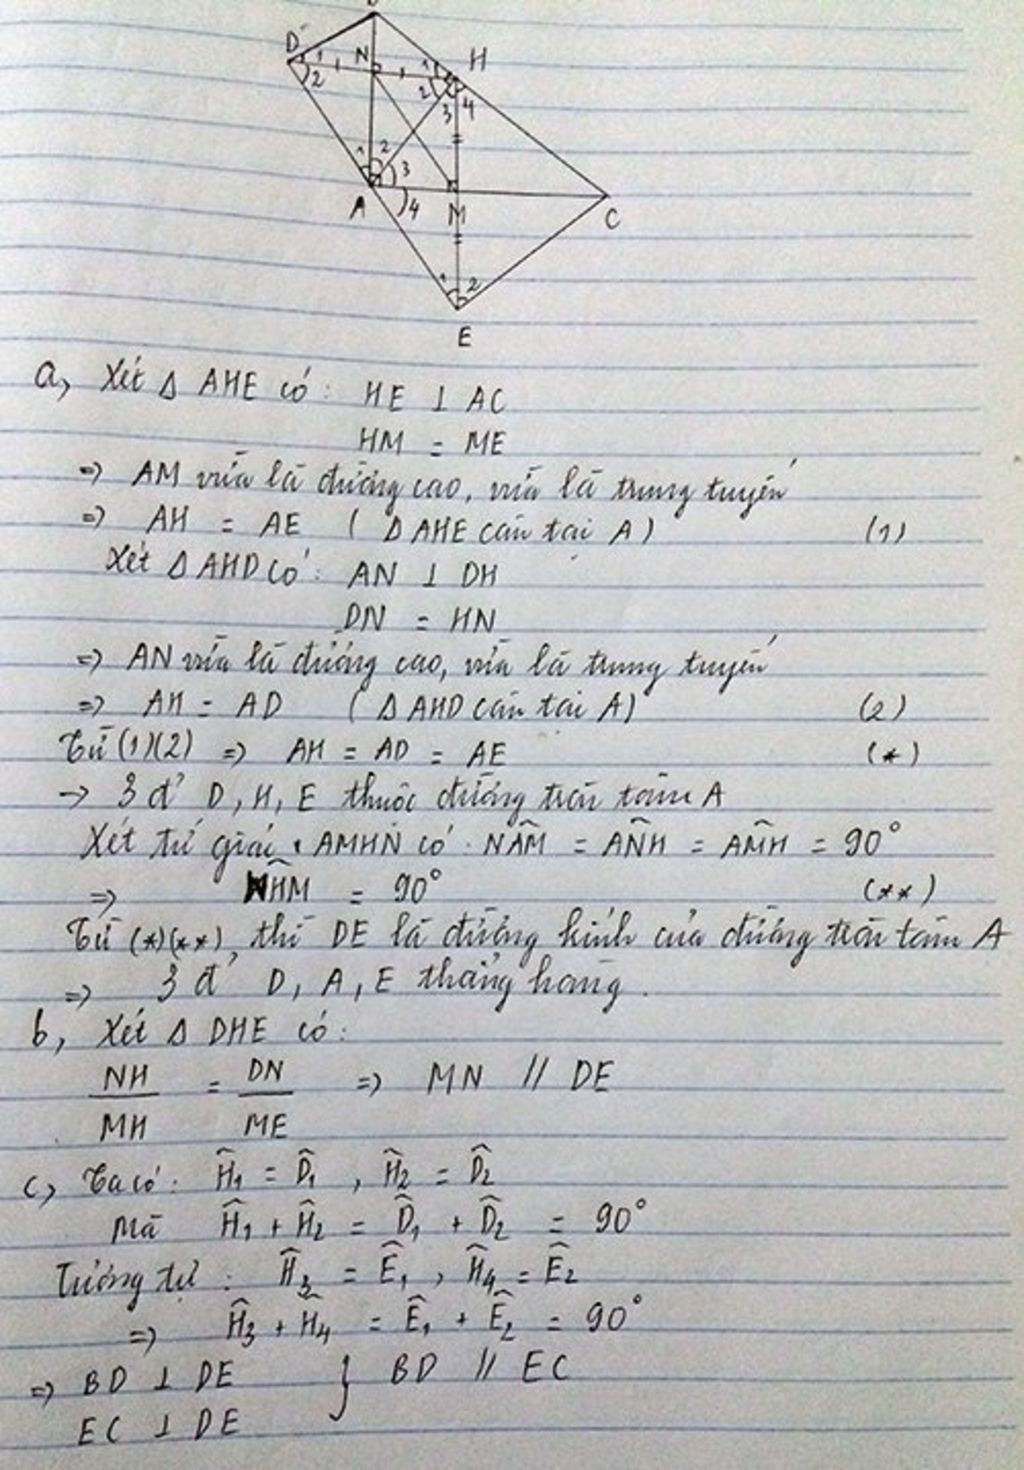 D
1
N
1
H
2
2
3
4
1
2
3
A
4
M
C
1
2
E
a, Xét Δ AHE có: HE ⊥ AC
HM = ME
=> AM vừa là đường cao, vừa là trung tuyến
=> AH = AE ( Δ AHE cân tại A) (1)
Xét Δ AHD có: AN ⊥ DH
DN = HN
=> AN vừa là đường cao, vừa là trung tuyến
=> AH = AD ( Δ AHD cân tại A) (2)
Từ (1)(2) => AH = AD = AE (*)
-> 3 đ' D, H, E thuộc đường tròn tâm A
Xét tứ giác AMHN có: NÂM = AN̂H = AM̂H = 90°
=> NĤM = 90° (**)
Từ (*)(**), thì DE là đường kính của đường tròn tâm A
=> 3 đ' D, A, E thẳng hàng.
b, Xét Δ DHE có:
NH/MH = DN/ME => MN // DE
c, Ta có: Ĥ1 = D̂1 , Ĥ2 = D̂2
Mà Ĥ1 + Ĥ2 = D̂1 + D̂2 = 90°
Tương tự: Ĥ3 = Ê1 , Ĥ4 = Ê2
=> Ĥ3 + Ĥ4 = Ê1 + Ê2 = 90°
=> BD ⊥ DE } BD // EC
EC ⊥ DE